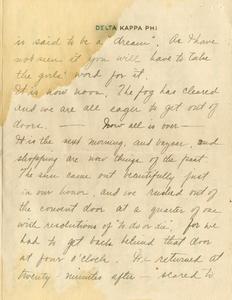 DELTA KAPPA PHI
is said to be a "dream". As I have
not seen it you will have to take
the girls' word for it.
It is now noon. The fog has cleared
and we are all eager to get out of
doors. — Now all is over —
It is the next morning, and bazaar, and
shopping are now things of the past.
The sun came out beautifully just
in our honor, and we rushed out of
the convent door at a quarter of one
with resolutions of "to do or die", for we
had to get back behind that door
at four o'clock. We returned at
twenty minutes after – "scared to